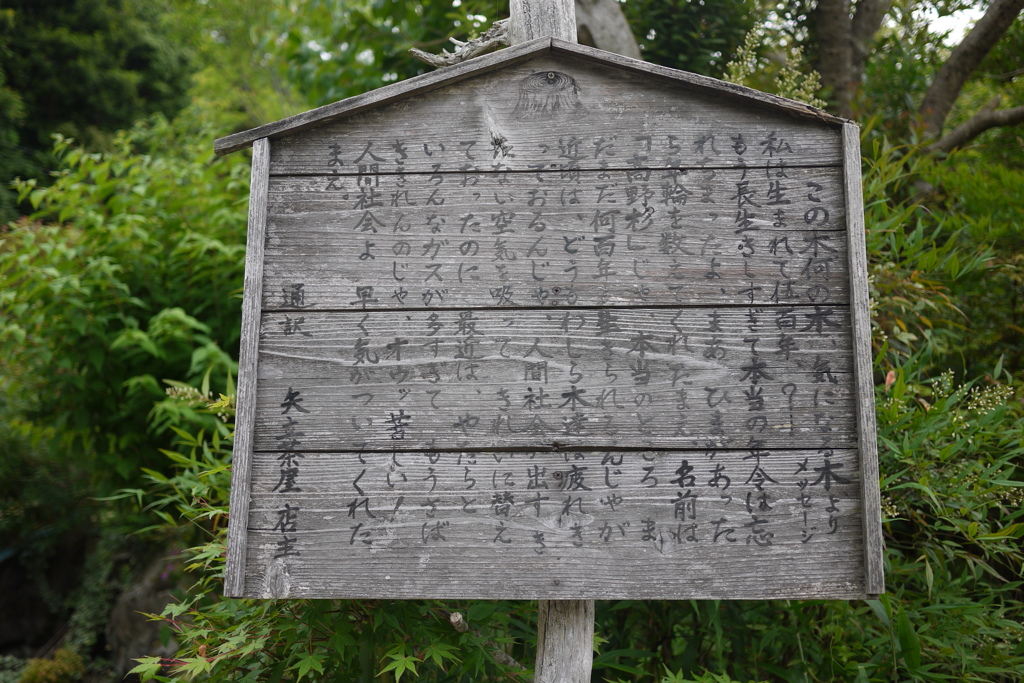 この木何の木、気になる木より
メッセージ
私は生まれて何百年、?!
もう長生きしすぎて本当の年令は忘
れちまったよ、まあ、ひまがあった
ら年輪を数えてくれたまえ 名前は
「高野杉」じゃ、本当のところ、ま
だまだ何百年も生きられるんじゃが
近頃は、どうもわしら木達は疲れき
っておるんじゃ、人間社会 出すき
ない空気を吸って きれいに替え
ておったのに、最近は、やたらと
いろんなガスが多すぎて もうさば
ききれんのじゃ、オウッ 苦しい!
人間社会よ 早く気がついてくれた
まえ。
通訳 矢立茶屋 店主